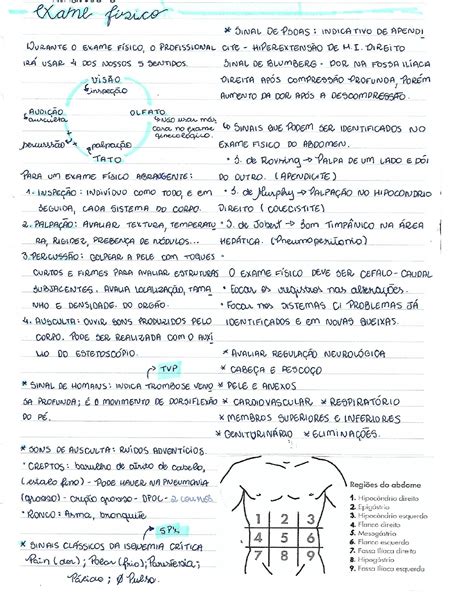 exame físico
DURANTE O EXAME FÍSICO, O PROFISSIONAL
IRÁ USAR 4 DOS NOSSOS 5 SENTIDOS.
VISÃO
inspeção
AUDIÇÃO
ausculta
OLFATO
percussão
palpação
TATO
PARA UM EXAME FÍSICO ABRANGENTE:
1. INSPEÇÃO: INDIVÍDUO COMO TODO, E EM
SEGUIDA, CADA SISTEMA DO CORPO.
2. PALPAÇÃO: AVALIAR TEXTURA, TEMPERATU
RA, RIGIDEZ, PRESENÇA DE NÓDULOS...
3. PERCUSSÃO: GOLPEAR A PELE COM TOQUES
CURTOS E FIRMES PARA AVALIAR ESTRUTURAS
SUBJACENTES. AVALIA LOCALIZAÇÃO, TAMA
NHO E DENSIDADE DO ORGÃO.
4. AUSCULTA: OUVIR SONS PRODUZIDOS PELO
CORPO. PODE SER REALIZADA COM O AUXÍ
LIO DO ESTETOSCÓPIO.
TVP
* SINAL DE HOMANS: INDICA TROMBOSE VENO
SA PROFUNDA; É O MOVIMENTO DE DORSIFLEXÃO
DO PÉ.
* SONS DE AUSCULTA: RUÍDOS ADVENTÍCIOS.
barulho de
cabelo,
(estalo fino) - PODE HAVER NA PNEUMONIA
(grosso) -
grosso - DPOC -
• RONCO: Asma, bronquite
* SINAIS CLÁSSICOS DA ISQUEMIA CRÍTICA
Pain (dor); Polar (frio); Parestesia;
Pálido; Ø Pulso.
* SINAL DE PSOAS: INDICATIVO DE APENDI
CITE - HIPEREXTENSÃO DE M.I. DIREITO
SINAL DE BLUMBERG - DOR NA FOSSA ILÍACA
DIREITA APÓS COMPRESSÃO PROFUNDA, PORÉM
AUMENTO DA DOR APÓS A DESCOMPRESSÃO.
SINAIS QUE PODEM SER IDENTIFICADOS NO
EXAME FÍSICO DO ABDOMEN.
• S. de Rovhing → PALPA DE UM LADO E DÓI
DO OUTRO. (APENDICITE)
• S. de Murphy → PALPAÇÃO NO HIPOCONDRIO
DIREITO (COLECISTITE)
S. de Jobert → SOM TIMPÂNICO NA ÁREA
HEPÁTICA. (Pneumoperitonio)
O EXAME FÍSICO DEVE SER CEFALO-CAUDAL
• Focar os registros nas alterações.
• Focar nos SISTEMAS C/ PROBLEMAS JÁ
IDENTIFICADOS E EM NOVAS QUEIXAS.
* AVALIAR REGULAÇÃO NEUROLÓGICA
* CABEÇA E PESCOÇO
* PELE E ANEXOS
* CARDIOVASCULAR * RESPIRATÓRIO
* MEMBROS SUPERIORES E INFERIORES
* GENITURINÁRIO * ELIMINAÇÕES.
1 2 3
4 5 6
7 8 9
Regiões do abdome
1. Hipocôndrio direito
2. Epigástrio
3. Hipocôndrio esquerdo
4. Flanco direito
5. Mesogástrio
6. Flanco esquerdo
7. Fossa ilíaca direita
8. Hipogástrio
9. Fossa ilíaca esquerda